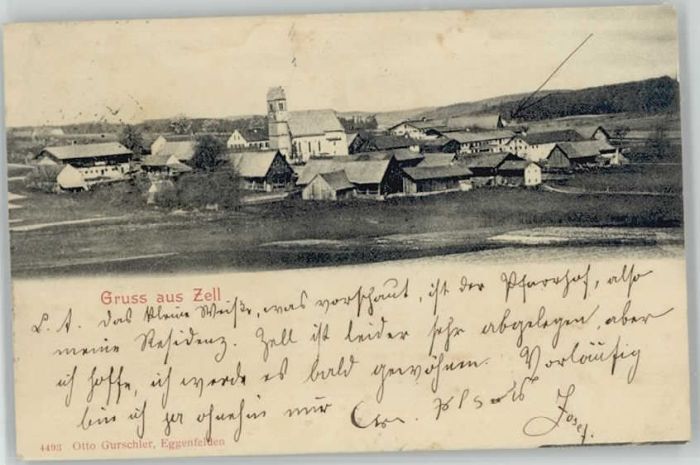 Gruss aus Zell
L. A. Das kleine Weiße, was vorschaut, ist der Pfarrhof, also
meine Residenz. Zell ist leider sehr abgelegen, aber
ich hoffe, ich werde es bald gewöhnen. Vorläufig
bin ich ja ohnehin nur
Josef.
4493 Otto Gurschler, Eggenfelden